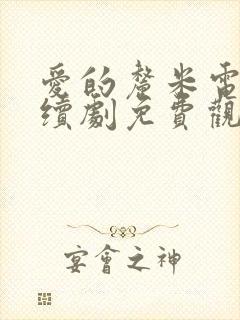 愛的釐米電
續劇免費觀
宴會之神